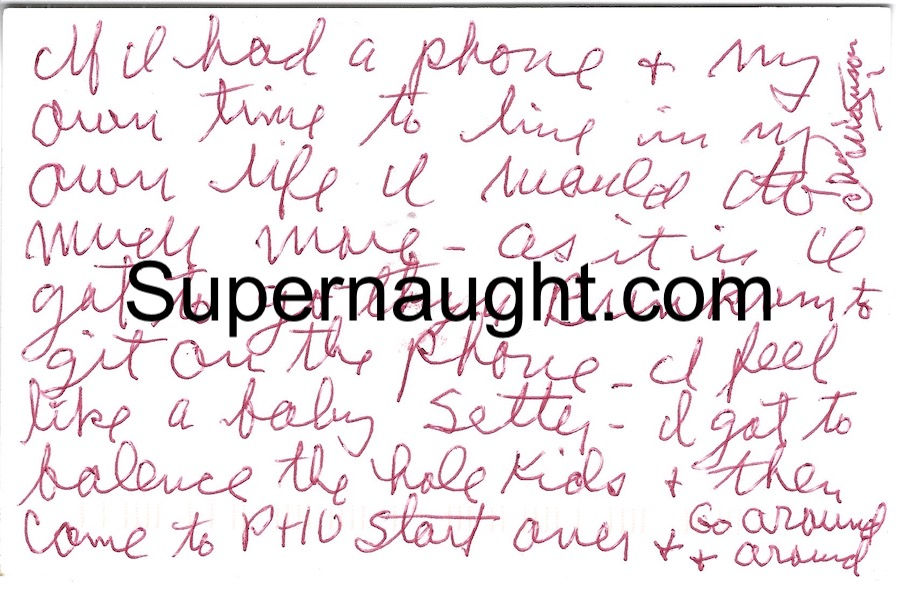 If I had a phone + my
own time to live in my
own life I would do
much more - as it is I
got to go to
git on the phone - I feel
like a baby Setter - I got to
balence the hole Kids + then
come to PHU start over +
Go around
+ around
Supernaught.com